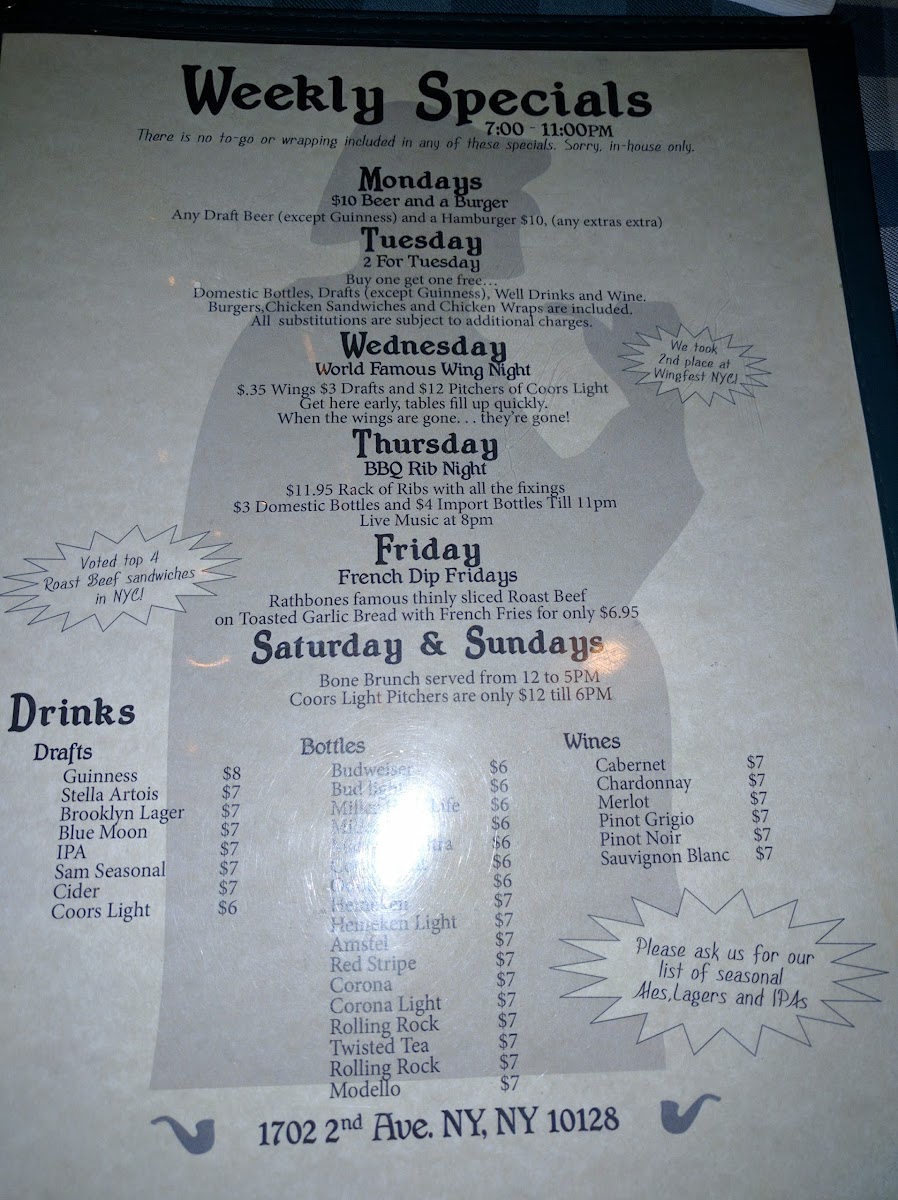 Weekly Specials
7:00 - 11:00PM
There is no to-go or wrapping included in any of these specials. Sorry, in-house only.
Mondays
$10 Beer and a Burger
Any Draft Beer (except Guinness) and a Hamburger $10, (any extras extra)
Tuesday
2 For Tuesday
Buy one get one free...
Domestic Bottles, Drafts (except Guinness), Well Drinks and Wine.
Burgers,Chicken Sandwiches and Chicken Wraps are included.
All substitutions are subject to additional charges.
Wednesday
World Famous Wing Night
$.35 Wings $3 Drafts and $12 Pitchers of Coors Light
Get here early, tables fill up quickly.
When the wings are gone. . . they're gone!
We took
2nd place at
Wingfest NYC!
Thursday
BBQ Rib Night
$11.95 Rack of Ribs with all the fixings
$3 Domestic Bottles and $4 Import Bottles Till 11pm
Live Music at 8pm
Voted top 4
Roast Beef sandwiches
in NYC!
Friday
French Dip Fridays
Rathbones famous thinly sliced Roast Beef
on Toasted Garlic Bread with French Fries for only $6.95
Saturday & Sundays
Bone Brunch served from 12 to 5PM
Coors Light Pitchers are only $12 till 6PM
Drinks
Drafts
Guinness $8
Stella Artois $7
Brooklyn Lager $7
Blue Moon $7
IPA $7
Sam Seasonal $7
Cider $7
Coors Light $6
Bottles
Budweiser $6
Bud light $6
Life $6
$6
$6
$6
$6
Heineken $7
Heineken Light $7
Amstel $7
Red Stripe $7
Corona $7
Corona Light $7
Rolling Rock $7
Twisted Tea $7
Rolling Rock $7
Modello $7
Wines
Cabernet $7
Chardonnay $7
Merlot $7
Pinot Grigio $7
Pinot Noir $7
Sauvignon Blanc $7
Please ask us for our
list of seasonal
Ales,Lagers and IPAs
1702 2nd Ave. NY, NY 10128